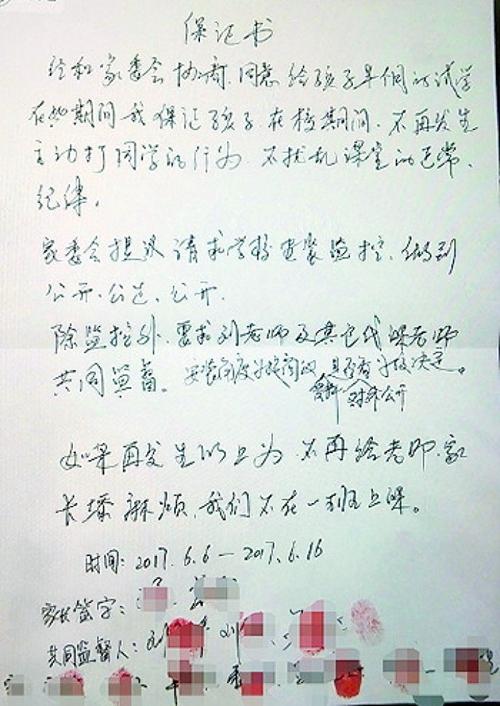 保证书
经和家委会协商,同意给孩子半个月试学
在此期间我保证孩子在校期间,不再发生
主动打同学的行为 不扰乱课堂的正常、
纪律。
家委会提议请求学校安装监控,做到
公开、公
除监控外,要求刘老师及其它代课老师
共同监督。安装 学校 是否 学校决定。
对外公开
如果再发生以上 为 不再给老师、家
长添麻烦,我们不在一班上课。
时间:2017.6.6—2017.6.16
家长签字:
共同监督人:刘 刘